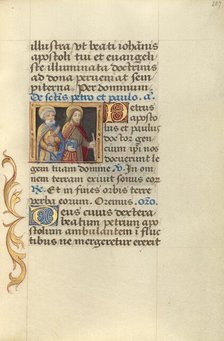 207
illustra vt beati iohānis
apostoli tui et euangeliste
ste illuminata doctrinis
ad dona perueniat sem
piterna. Per dominum.
De sctis petro et paulo. a.
Petrus
aposto
lus et paulus
doctor gen
cium ipsi nos
docuerunt le
gem tuam domine. V. In om
nem terram exiuit sonus eor
R. Et in fines orbis terre
verba eorum. Oremus. oro.
Deus cuius dextera
beatum petrum apo
stolum ambulantem i fluc
tibus ne mergeretur erexit